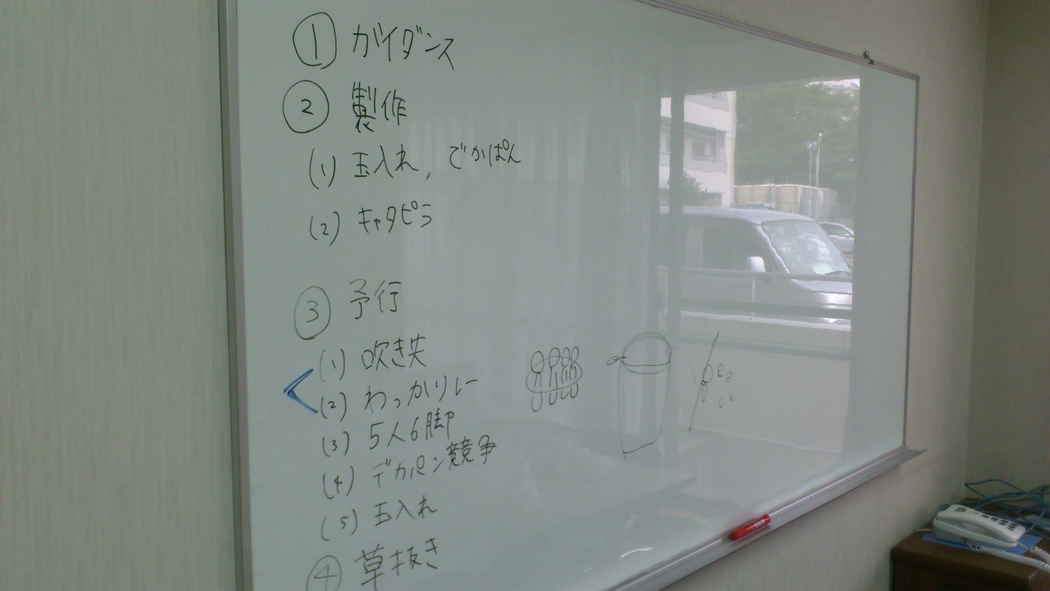 ① ガイダンス
② 製作
(1) 玉入れ, でかぱん
(2) キャタピラ
③ 予行
(1) 吹き矢
(2) わっかリレー
(3) 5人6脚
(4) デカパン競争
(5) 玉入れ
④ 草抜き